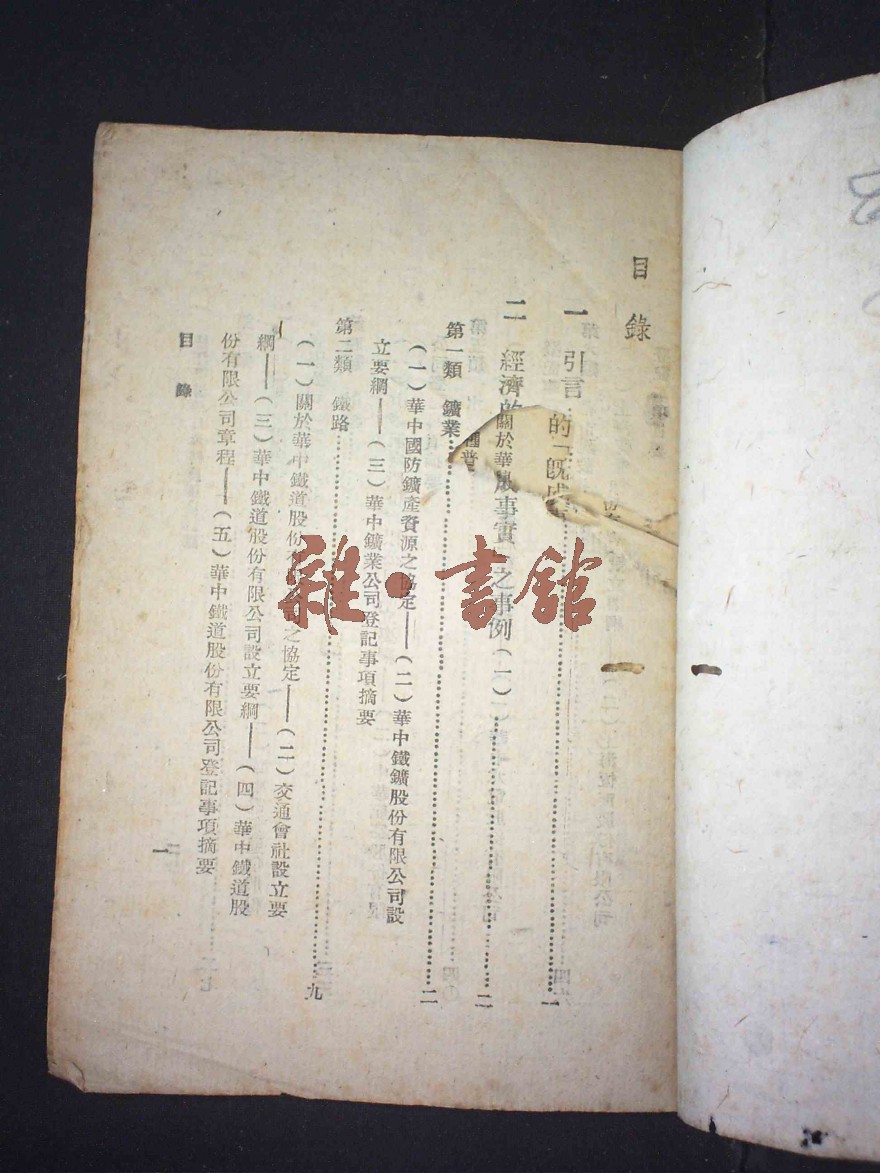 目錄
一 引言……一
二 經濟的「既成事實」之事例(一)……二
第一類 鑛業……二
(一)華中國防鑛產資源之協定——(二)華中鐵鑛股份有限公司設
立要綱——(三)華中鑛業公司登記事項摘要
第二類 鐵路……九
(一)關於華中鐵道股份有限公司之協定——(二)交通會社設立要
綱——(三)華中鐵道股份有限公司設立要綱——(四)華中鐵道股
份有限公司章程——(五)華中鐵道股份有限公司登記事項摘要
目錄
一
雜·書館